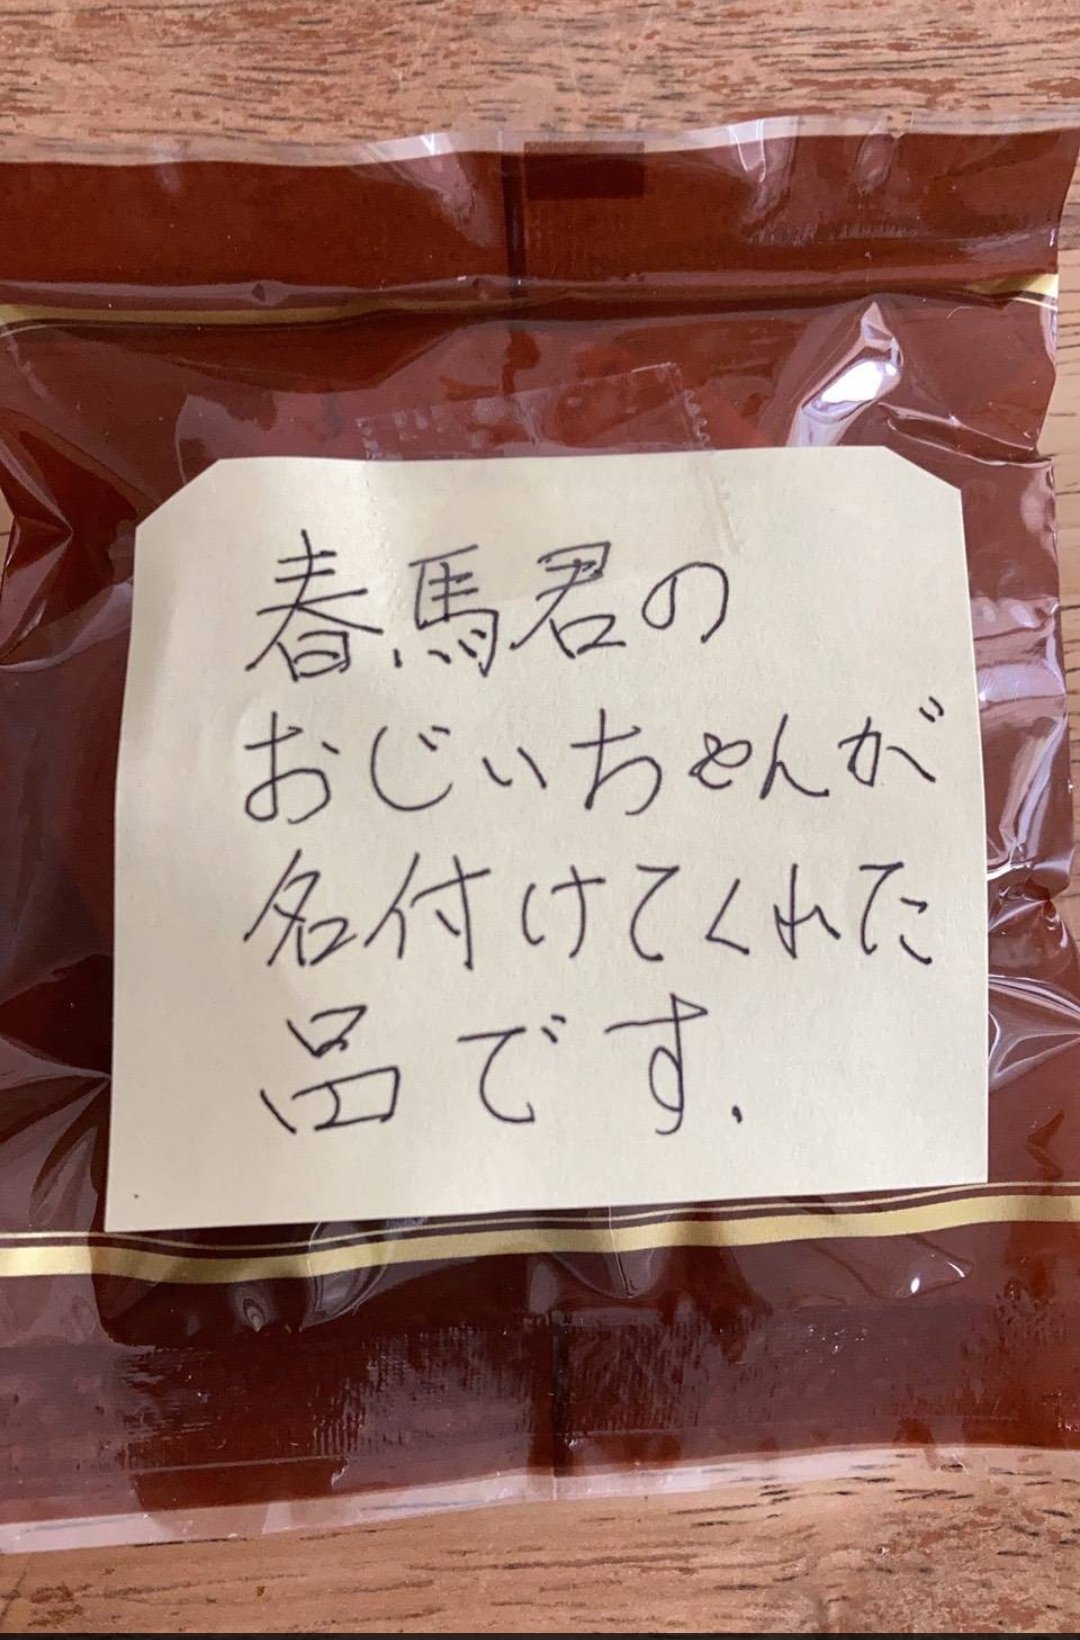 春馬君の
おじいちゃんが
名付けてくれた
品です.